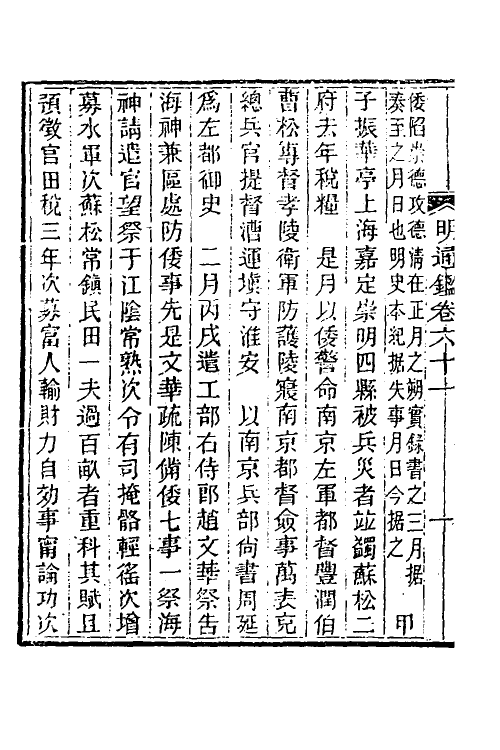 明通鑑卷六十一
倭陷崇德攻德清在正月之朔實錄書之三月據
奏至之月日也明史本紀据失事月日今据之 甲
子振華亭上海嘉定崇明四縣被兵災者竝蠲蘇松二
府去年稅糧 是月以倭警命南京左軍都督豐潤伯
曹松專督孝陵衛軍防護陵寢南京都督僉事萬表充
總兵官提督漕運鎮守淮安 以南京兵部尚書周延
爲左都御史 二月丙戌遣工部右侍郎趙文華祭告
海神兼區處防倭事先是文華疏陳備倭七事一祭海
神請遣官望祭于江陰常熟次令有司掩骼輕徭次增
募水軍次蘇松常鎮民田一夫過百畝者重科其賦且
預徵官田稅三年次募富人輸財力自効事甯論功次